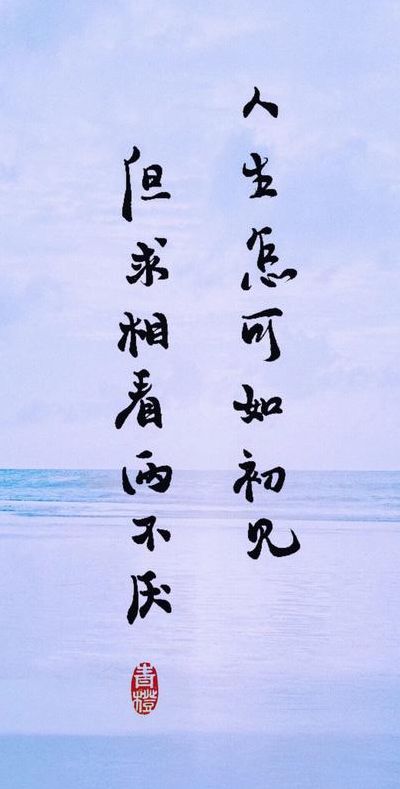 人生怎可如初见
但求相看两不厌
书橙